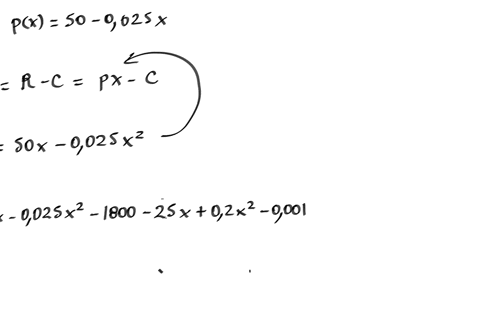 p(x) = 50 - 0,025x
= R - C = px - C
= 50x - 0,025x²
x - 0,025x² - 1800 - 25x + 0,2x² - 0,001